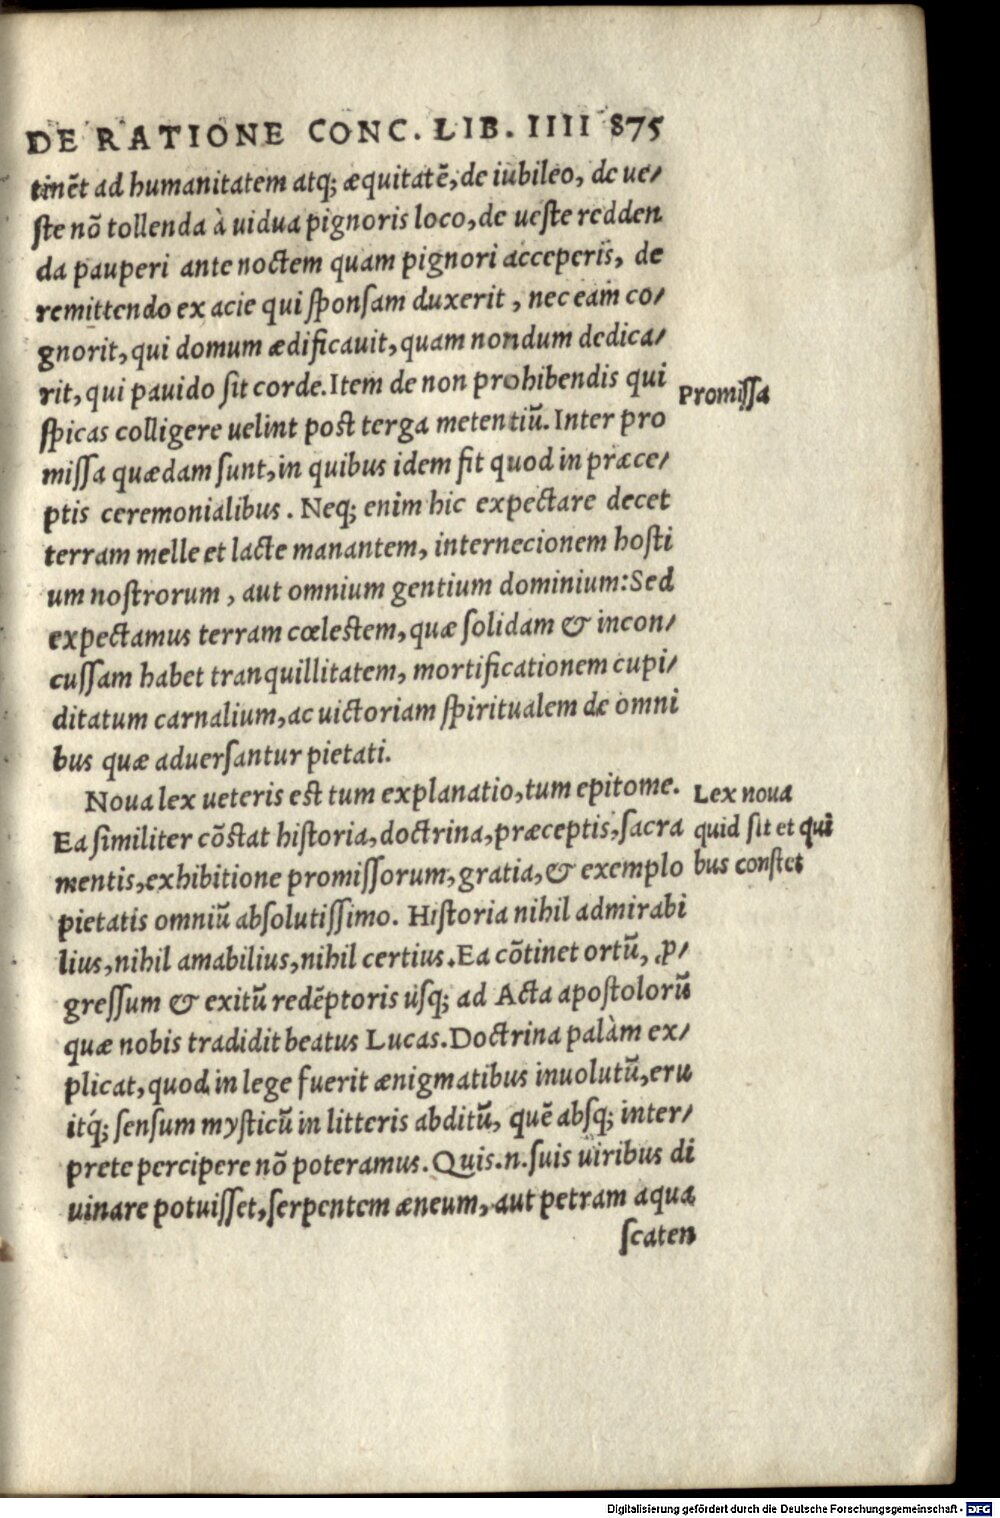 DE RATIONE CONC. LIB. IIII 875
tinēt ad humanitatem atq; æquitatē, de iubileo, de ue/
ſte nō tollenda à uidua pignoris loco, de ueſte redden
da pauperi ante noctem quam pignori acceperis, de
remittendo ex acie qui ſponſam duxerit, nec eam co/
gnorit, qui domum ædificauit, quam nondum dedica/
rit, qui pauido ſit corde. Item de non prohibendis qui
Promiſſa
ſpicas colligere uelint poſt terga metentiū. Inter pro
miſſa quædam ſunt, in quibus idem fit quod in præce/
ptis ceremonialibus. Neq; enim hic expectare decet
terram melle et lacte manantem, internecionem hoſti
um noſtrorum, aut omnium gentium dominium: Sed
expectamus terram cœleſtem, quæ ſolidam & incon/
cuſſam habet tranquillitatem, mortificationem cupi/
ditatum carnalium, ac uictoriam ſpiritualem de omni
bus quæ aduerſantur pietati.
Noua lex ueteris eſt tum explanatio, tum epitome.
Lex noua
Ea ſimiliter cōſtat hiſtoria, doctrina, præceptis, ſacra
quid ſit et qui
mentis, exhibitione promiſſorum, gratia, & exemplo
bus conſtet
pietatis omniū abſolutiſſimo. Hiſtoria nihil admirabi
lius, nihil amabilius, nihil certius. Ea cōtinet ortū, ꝓ/
greſſum & exitū redēptoris uſq; ad Acta apoſtolorū
quæ nobis tradidit beatus Lucas. Doctrina palàm ex/
plicat, quod in lege fuerit ænigmatibus inuolutū, eru
itq́; ſenſum myſticū in litteris abditū, quē abſq; inter/
prete percipere nō poteramus. Quis .n. ſuis uiribus di
uinare potuiſſet, ſerpentem æneum, aut petram aqua
ſcaten
Digitalisierung gefördert durch die Deutsche Forschungsgemeinschaft - DFG